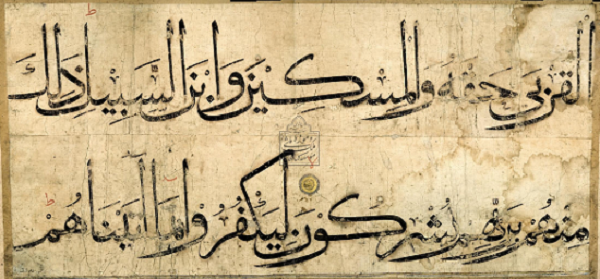 القربى حقه والمسكين وابن السبيل ذلك
منهم بربهم يشركون ليكفروا بما آتيناهم